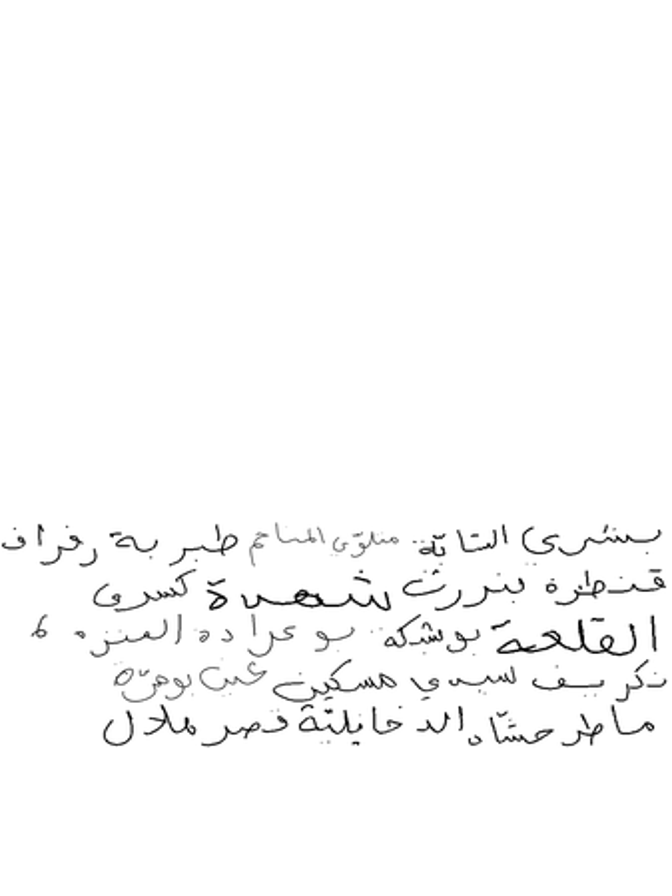 بشرى التابّة منلوّى المناجم طبربة رفراف
قنطرة بنزرت شهدة كسرى
القلعة بوشكه بو عرادة المنزه 6
سيدي مسكين عين بومرّة
ماطر حشّاد الدخايليّة قصر ملال